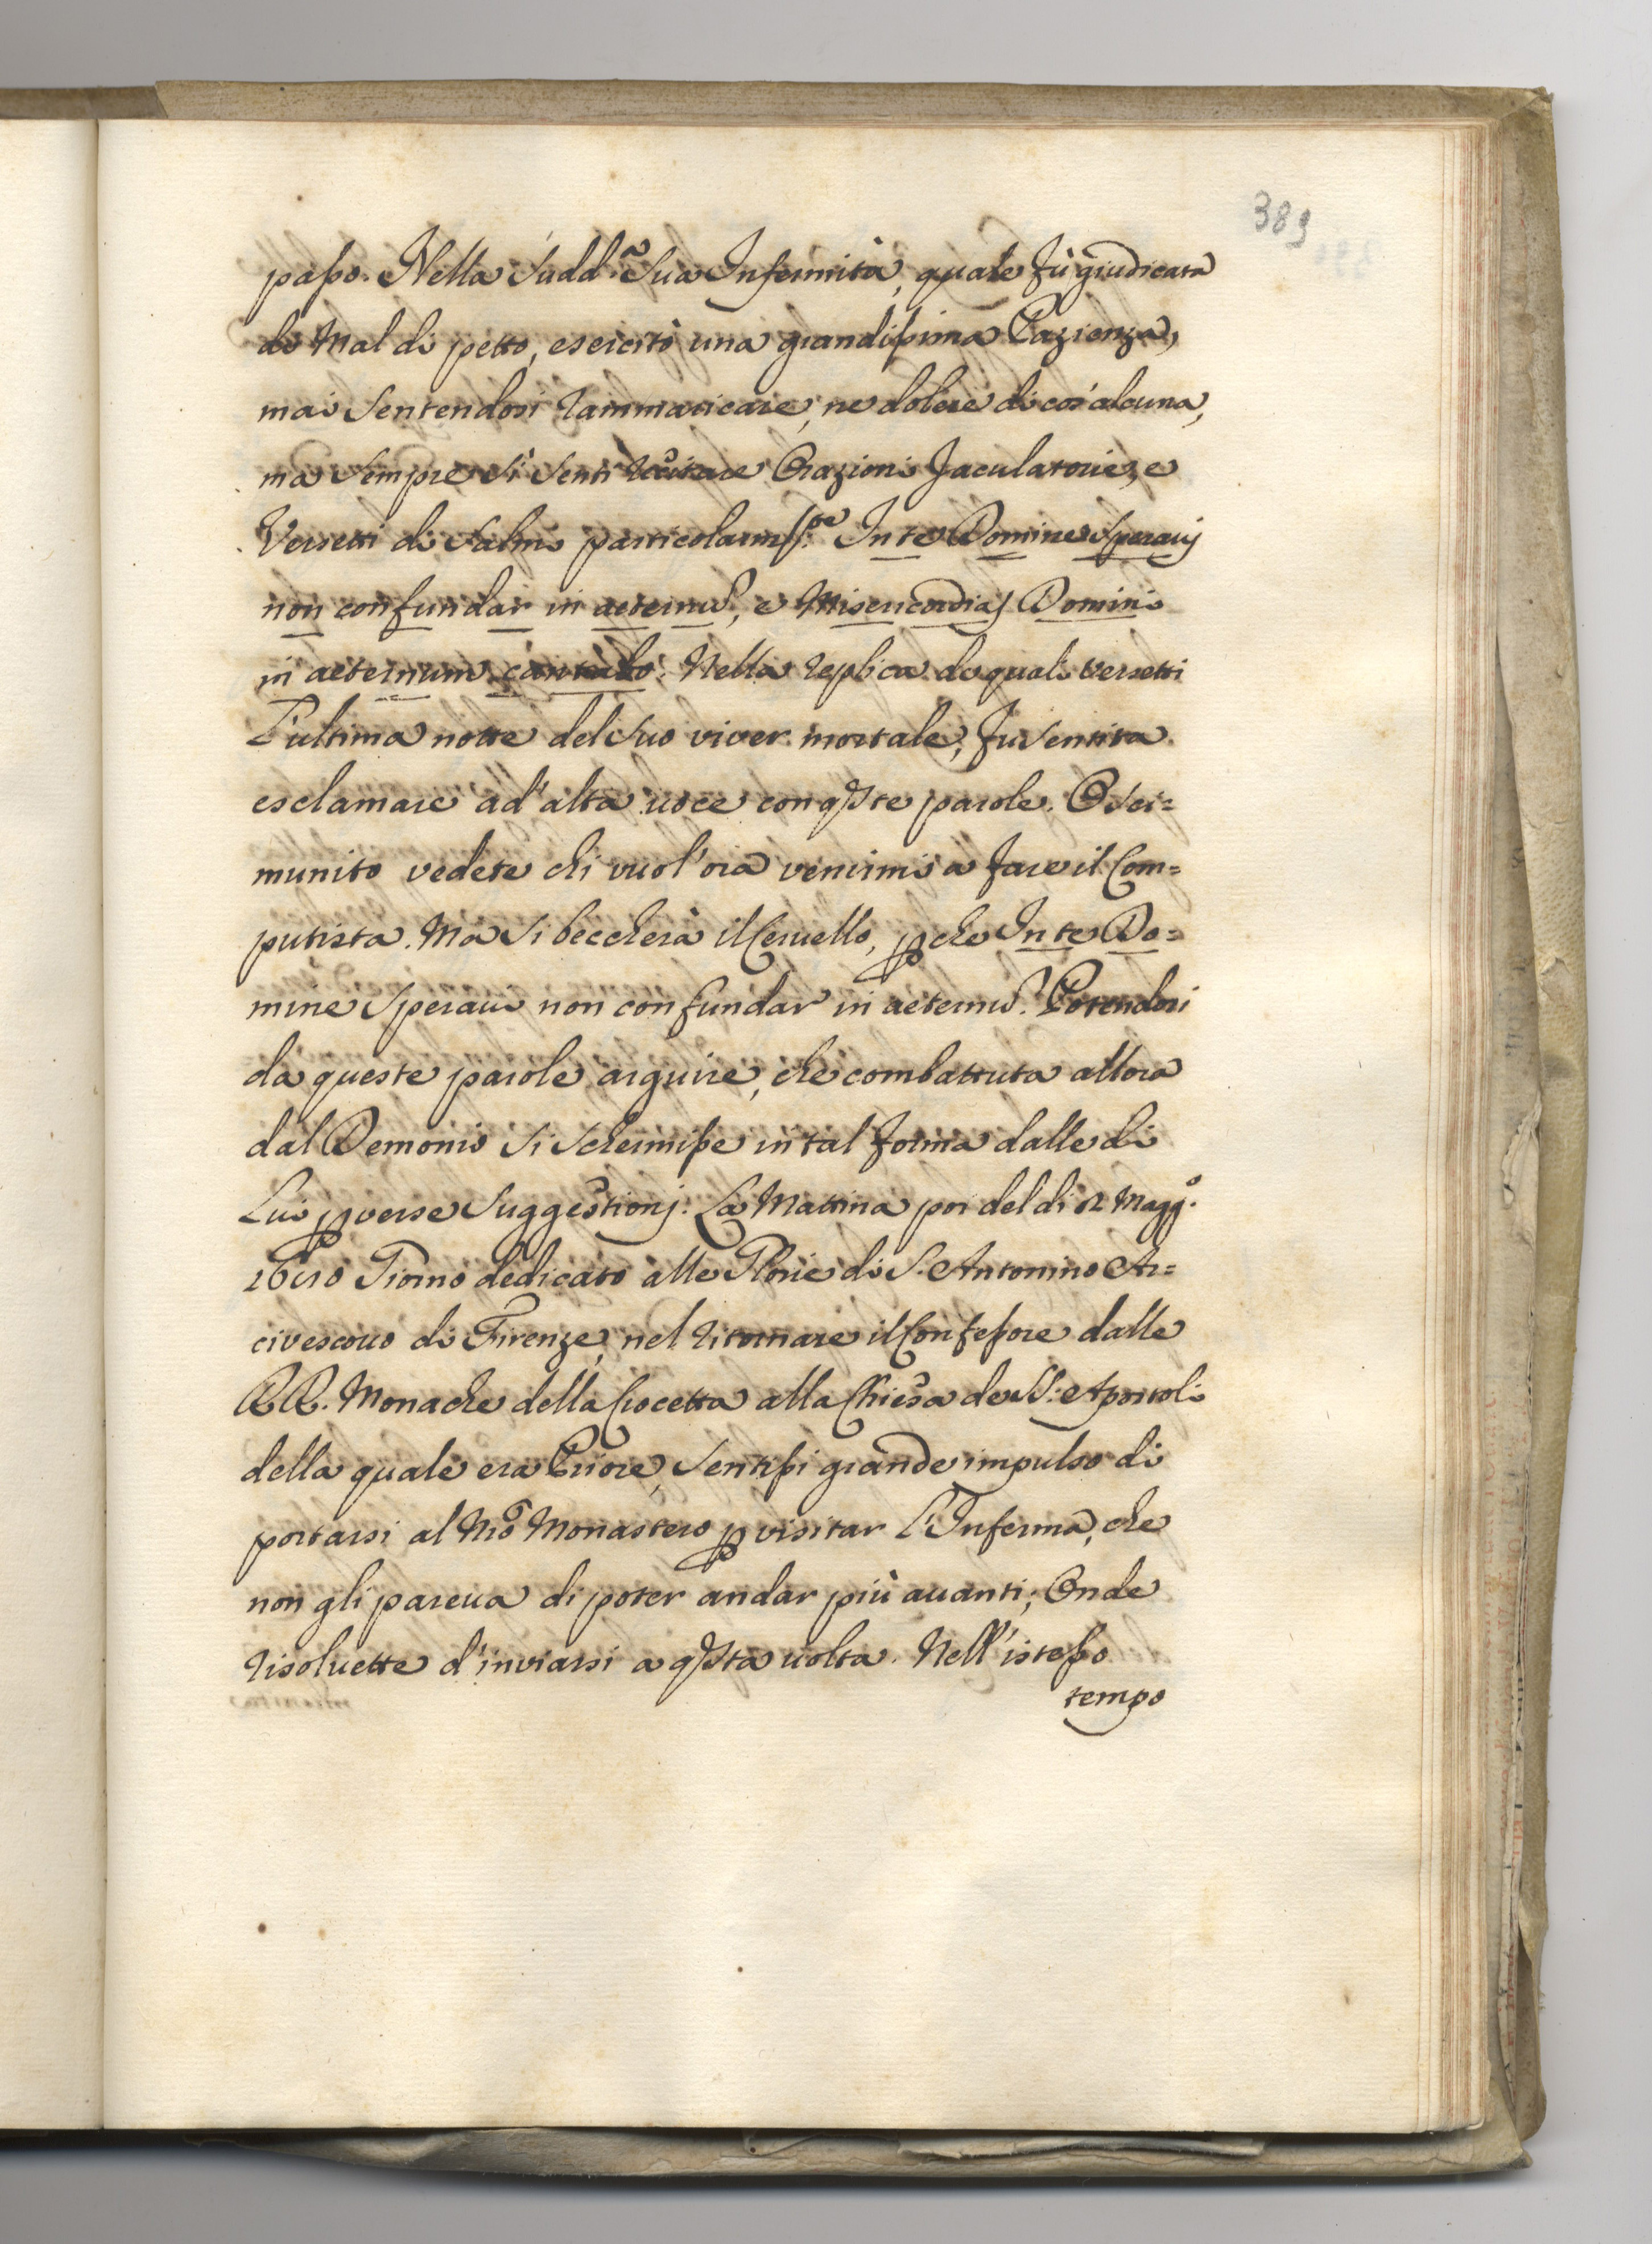 389
passo. Nella Sudd.ª Sua Infermità, quale fù giudicata
di Mal di petto, esercitò una grandissima Pazienza,
mai Sentendosi rammaricare, ne dolere di cos'alcuna,
ma Sempre Si Sentì recitare Orazioni Jaculatorie, e
Versetti di Salmi particolarm.te In te Domine Speravj
non confundar in aeternũ, e Misericordias Domini
in aeternum cantabo. Nella replica de quali versetti
L'ultima notte del Suo viver mortale, fu Sentita
esclamare ad'alta uoce con qste parole. O Sci=
munito vedete chi vuol'ora venirmi a fare il Com=
putista. Ma Si beccherà il Ceruello, pche In te Do=
mine Speraui non confundar in aeternũ. Potendosi
da queste parole arguire, che combattuta allora
dal Demonio Si Schermisse in tal forma dalle di
Lui pverse Suggestionj. La Mattina poi del di 2 Magg.º
Giorno dedicato alle Glorie di S. Antonino Ar=
civescouo di Firenze, nel ritornare il Confessore dalle
RR. Monache della Crocetta alla Chiesa de SS. Apostoli
della quale era Priore, Sentissi grande impulso di
portarsi al Nrõ Monastero p visitar L'Inferma, che
non gli pareua di poter andar più auanti; Onde
risoluette d'inviarsi a qsta uolta. Nell'istesso
tempo